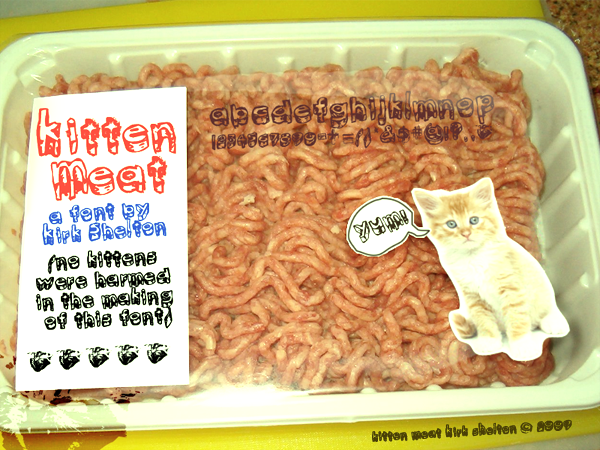 kitten
meat
a font by
kirk Shelton
(no kittens
were harmed
in the making
of this font)
abcdefghijklmnop
1234567890-+=
yum!
kitten meat kirk shelton ©